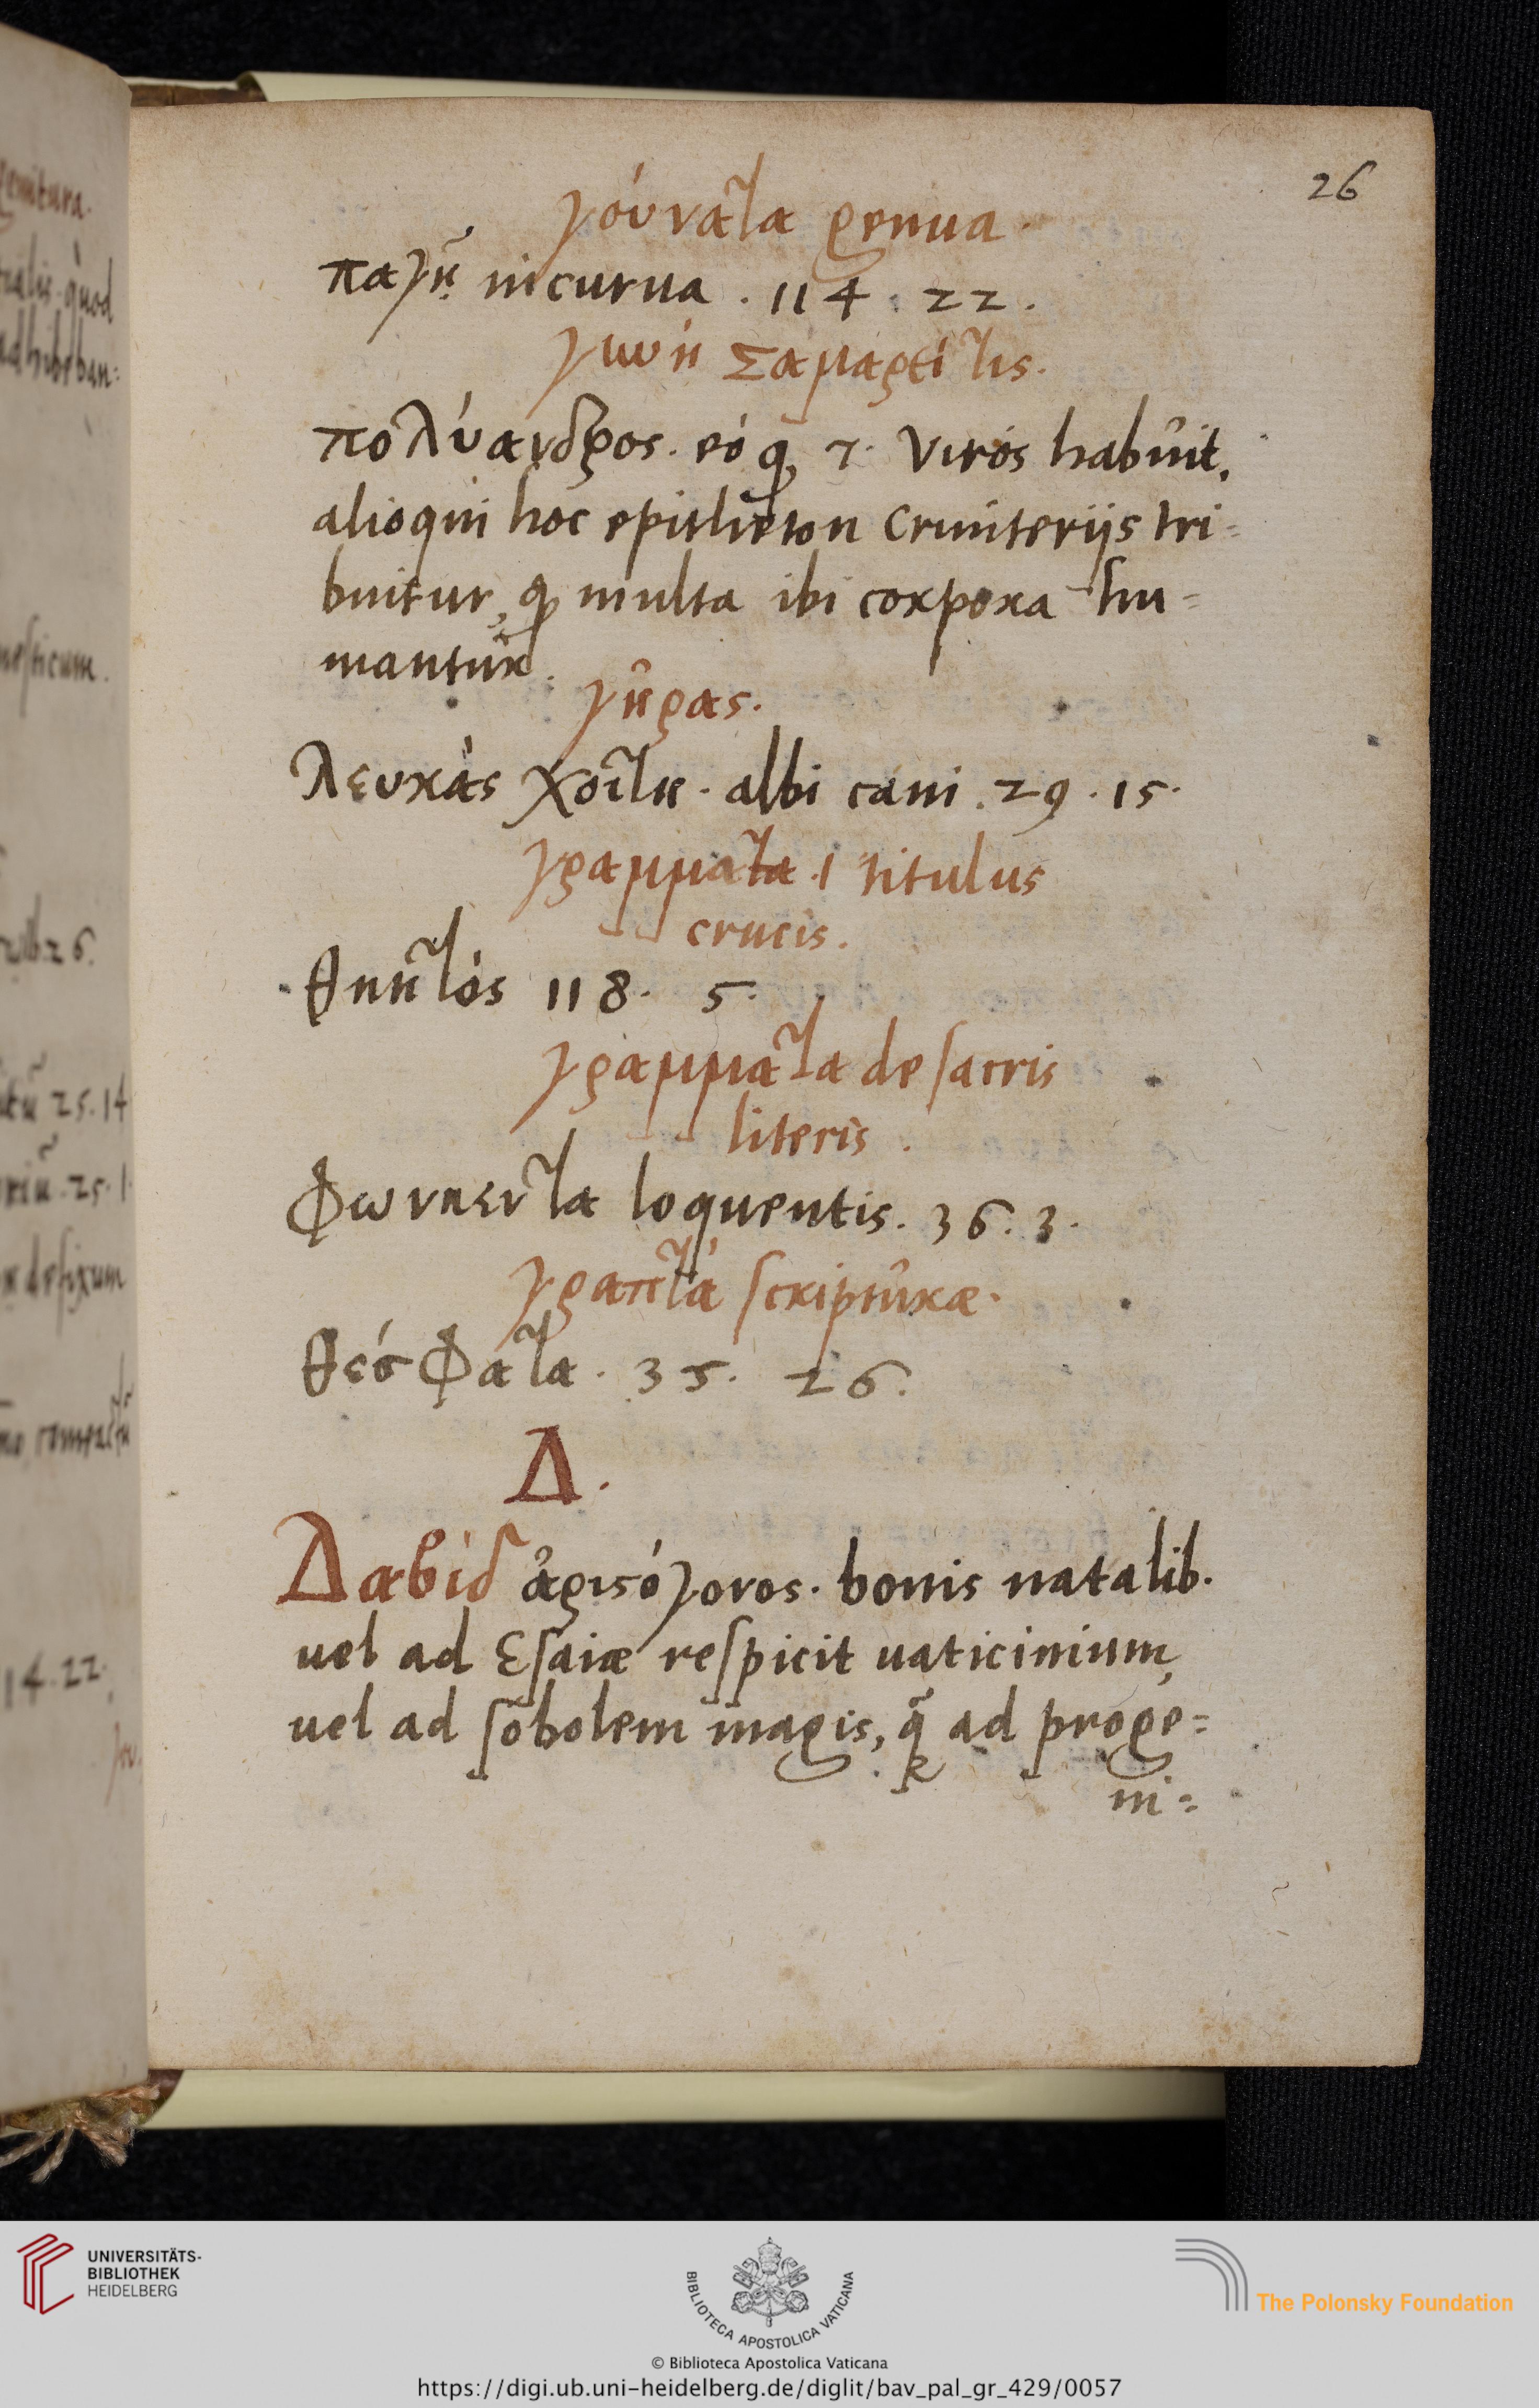 26
γούνατα genua.
παγῆ incurua . 114 . 22 .
γυνὴ Σαμαρεῖτις.
πολύανδρος. eó q 7. viros habuit,
alioqui hoc epitheton Cœmiterijs tri=
buitur, q multa ibi corpora hu=
mantur.
γῆρας.
λευκὰς χαίτη . albi cani . 29 . 15.
γράμματα .1 titulus
crucis.
θηητός 118. 5.
γράμματα de sacris
literis .
φωνηεντα loquentis. 36. 3.
γραπτά scripturæ.
θέσφατα . 35. 26.
Δ.
Δαβίδ ἀριστόγονος. bonis natalib.
uel ad Esaiæ respicit uaticinium,
uel ad sobolem magis, q̃ ad proge=
ni=
genitura.
quod
adhiban:
nesticum.
25.14
25.1
defixum
14.22.
UNIVERSITÄTS-
BIBLIOTHEK
HEIDELBERG
BIBLIOTECA APOSTOLICA VATICANA
The Polonsky Foundation
© Biblioteca Apostolica Vaticana
https://digi.ub.uni-heidelberg.de/diglit/bav_pal_gr_429/0057